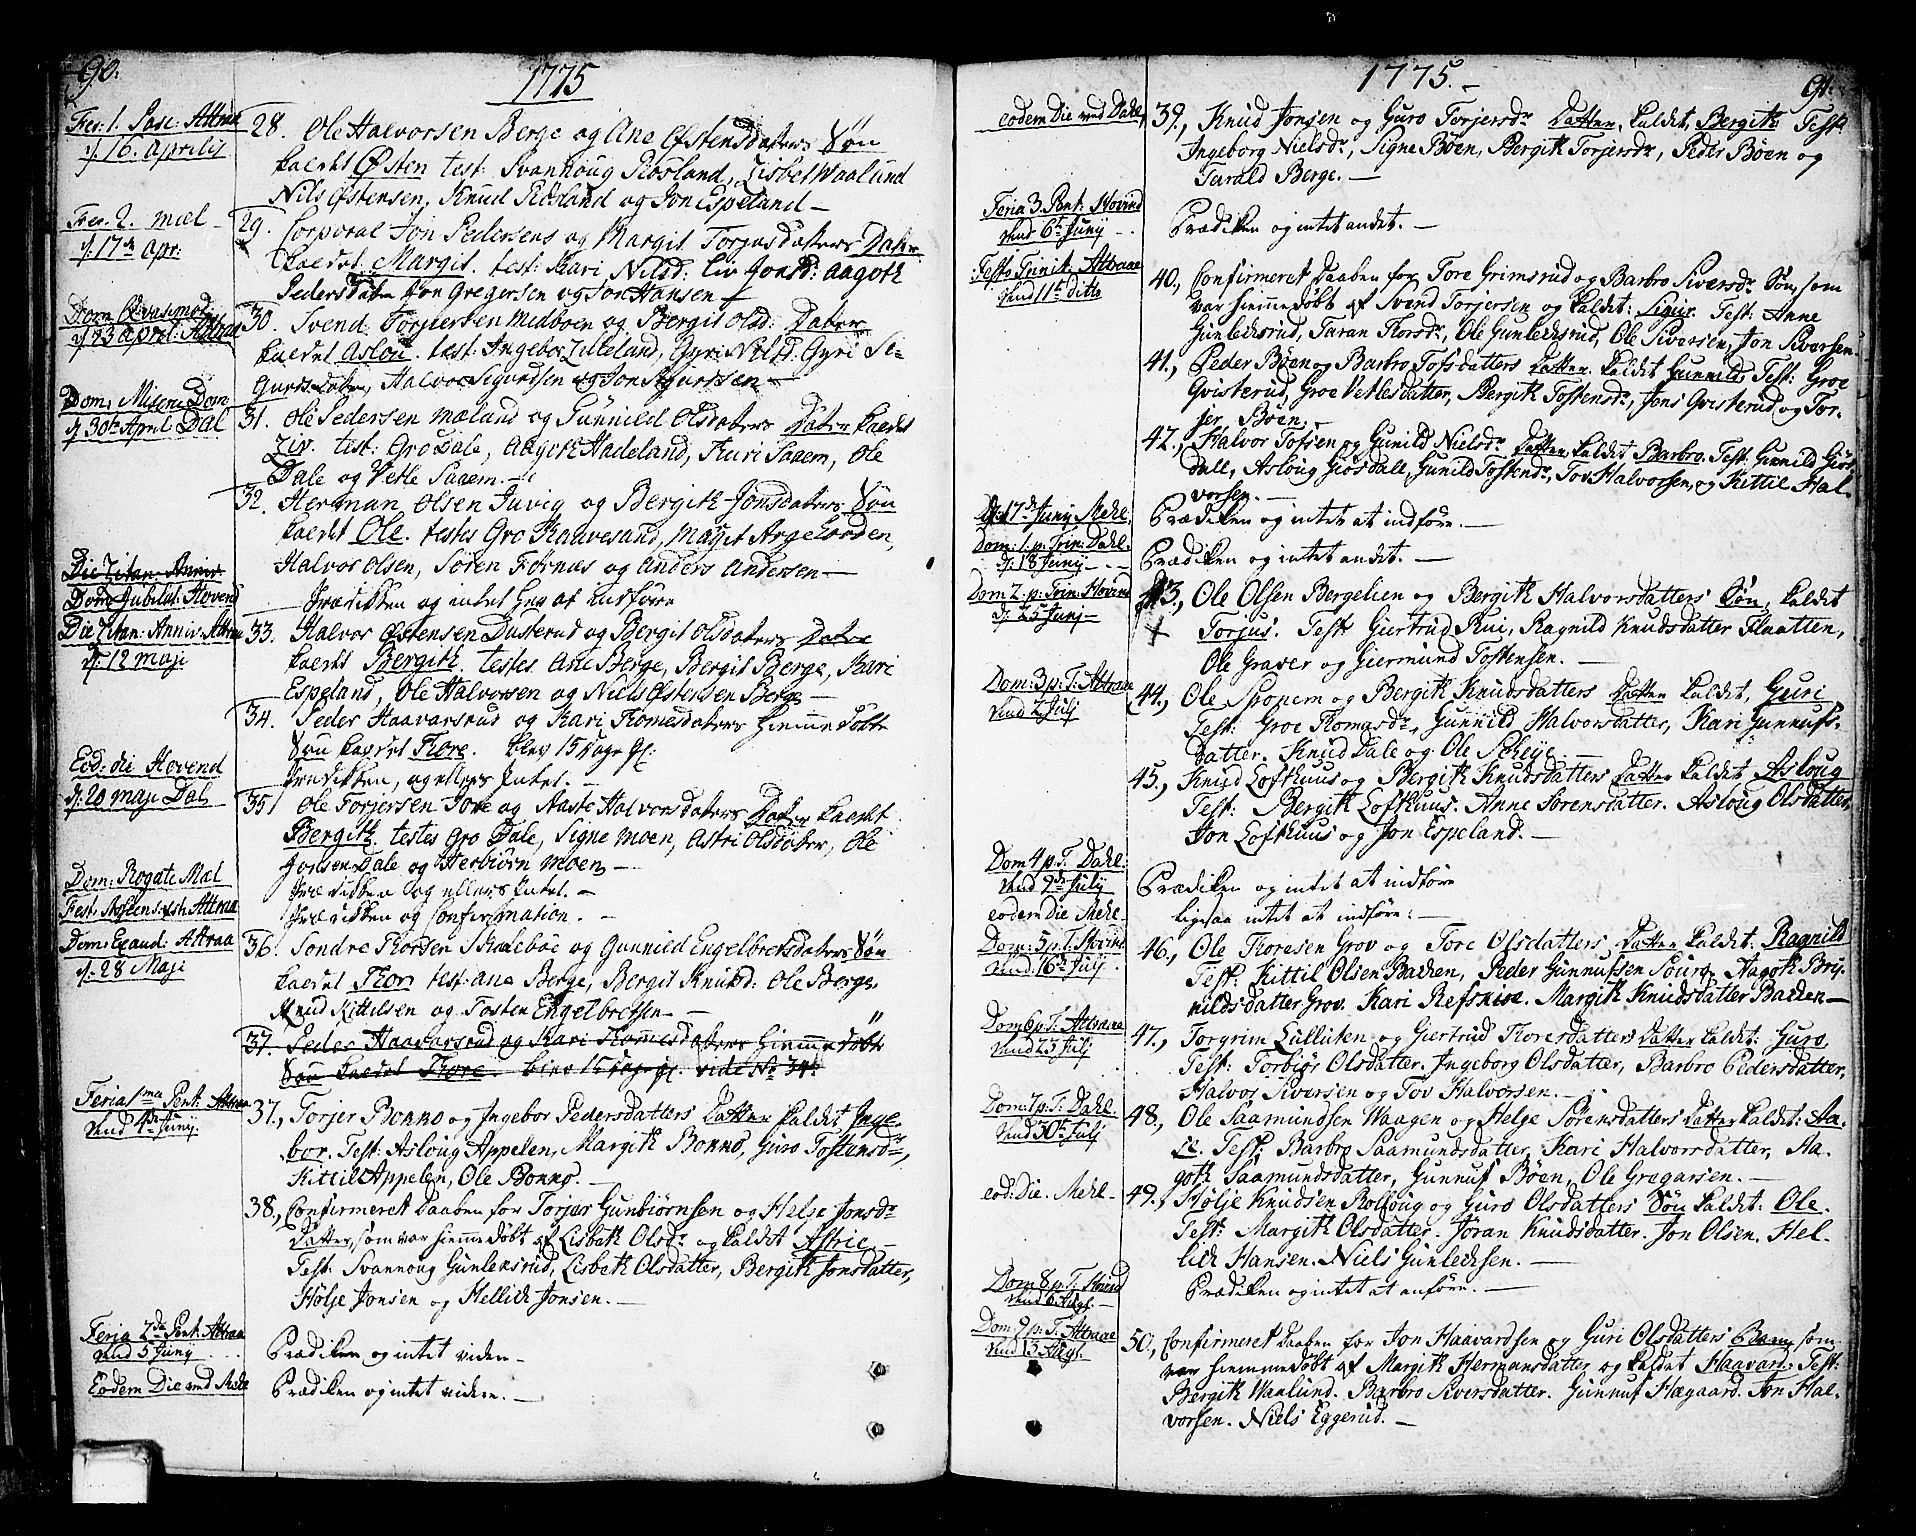 90.
1775
Fer: 1. Pasc: Attraa
d. 16. Aprilis
28. Ole Halvorsen Berge og Ane Østensdaters Søn
kaldet Østen test: Svanhoug Rosland, Lisbet Waalund
Nils Østensen, Knud Rosland og Jon Espeland —
Fer. 2. Mæl —
d. 17de Apr:
29. Corporal Jon Pedersens og Margit Torjusdaters Dater
kaldet Margit. test: Kari Nilsd: Liv Jonsd: Aagoth
Pedersdater Jon Gregersen og Jon Hansen —
Dom Qvasimod.
d. 23 April: Attraa
30. Svend Torjersen Midboen og Bergit Olsd: Dater
kaldet Aslou. test: Ingebor Lilleland, Gyri Nilsd: Gyri Si-
gursdater, Halvor Sigurdsen og Jon Sigurdsen —
Dom: Miseric Dom
d. 30te April Dal
31. Ole Pedersen Mæland og Gunnild Olsdaters Dater kaldet
Liv. test: Gro Dale, Aagoth Hadeland, Kari Saaem, Ole
Dale og Vetle Saaem. —
32. Herman Olsen Juvig og Bergith Jonsdaters Søn
kaldet Ole. testes Gro Kaavesand, Maget
Halvor Olsen, Søren Fornæs og Anders Andersen —
Die Litan: Anniv:
Dom Jubilat: Hovend
Prædikken og intet her at indføre
Die Litan: Anniv: Attraa
d. 12 Maji
33. Halvor Østensen Dusterud og Bergit Olsdaters Datre
kaldet Bergith. testes Ane Berge, Bergit Berge, Kari
Espeland, Ole Halvorsen og Niels Østensen Berge —
34. Peder Haavarsrud og Kari Tomesdaters hiemmedøbte
Søn kaldet Tore. blev 15 dage gl.
Eod: die Hovend
Prædikken, og ellers intet. —
d. 20 Maji Dal
35. Ole Torjersen Jore og Aaste Halvorsdaters Dater kaldet
Bergith. testes Gro Dale, Signe Moen, Astri Olsdater, Ole
Jonsen Dale og Herbiørn Moen —
Dom: Rogate Mæl
Prædikken og ellers intet. —
Fest. Ascens: Attraa
Prædikken og Confirmation. —
Dom: Exaud: Attraa
d. 28 Maji
36. Sondre Torsen Skaleboe og Gunnild Engelbretsdaters Søn
kaldet Tor. test: Ane Berge, Bergit Knudsd: Ole Berge,
Knud Kittelsen og Tosten Engelbretsen. —
37. Peder Haavarsrud og Kari Tommesdaters hiemmedøbte
Søn kaldet Tore. blev 15 dage gl. vide No 34.
Feria 1ma Pent: Attraa
d. 4de Junij.
37., Torjer Bonno og Ingebor Pedersdatters Datter kaldet Inge-
bor. Test: Asloug Appelen, Margith Bonno, Guro Tostensdr,
Kittil Appelen, Ole Bonno. —
38., Confirmeret Daaben for Torjer Gunbiørnsen og Helge Jonsdr
Datter, som var hiemmedøbt af Lisbeth Olsdr og kaldet Astrie. —
Test: Svannoug Gunleksrud, Lisbeth Olsdatter, Bergith Jonsdatter,
Hølje Jonsen og Hellich Jonsen. —
Feria 2da Pent: Attraa
d. 5 Junij
Prædiken og intet viden —
Eodem Die ved Mæle
Prædiken og intet videre. —
1775. —
91.
eodem Die ved Dahl
39., Knud Jonsen og Guro Torjersdr Datter, kaldet, Bergith Test:
Ingeborg Nielsdr, Signe Bøen, Bergith Torjersdr, Peder Bøen og
Tarald Berge. —
Feria 3. Pent: Hovind
d. 6te Junij
Prædiken og intet andet. —
Festo Trinit. Attraae
d. 11te ditto
40., Confirmeret Daaben for Tore Grimsrud og Barbro Siversdr Søn, som
var hiemmedøbt af Svend Torjersen og kaldet: Sigur. Test: Anne
Gunlecksrud, Taran Thorsdr, Ole Gunlecksrud, Ole Siversen, Jon Siversen.
41., Peder Bøen og Barbro Tofsdatters Datter kaldet Gunnild; Test: Groe
Qvisterud, Groe Vetlesdatter, Bergith Tostensdr, Jons Qvisterud og Tor-
jer Bøen. —
42., Halvor Tofsen og Gunild Nielsdr Datter kaldet Barbro. Test: Gunnild Giøs-
dall, Asloug Giøsdall, Gunild Tostensdr, Tov Halvorsen, og Kittil Hal-
vorsen. —
d. 17de Junij Mehl.
Prædiken og intet at indføre. —
Dom: 1. p: Trin: Dahl.
d. 18 Junij —
Prædiken og intet andet. —
Dom 2. p. Trin: Hovind
d. 25 Junj —
43., Ole Olsen Bergelien og Bergith Halvorsdatters Søn, kaldet
Torjus. Test: Giertrud Rui, Ragnild Knudsdatter Flaatten,
Ole Graver og Giermund Tostensen. —
Dom: 3 p: T: Attraae
d. 2 Julj
44., Ole Sponem og Bergith Knudsdatters Datter kaldet, Guri
Test: Groe Tomasdr, Gunnild Halvorsdatter, Kari Gunnufs-
datter. Knud Dale og Ole Scheje. —
45., Knud Lofthuus og Bergith Knudsdatters Datter kaldet Asloug
Test: Bergith Lofthuus. Anne Sørensdatter. Asloug Olsdatter,
Jon Lofthuus og Jon Espeland. —
Dom 4 p. T. Dahl.
d. 9de Julij
Prædiken og intet at indføre
eodem Die Mehl.
ligesaa intet at indføre: —
Dom: 5 p. T. Hovind
d. 16de Julj
46., Ole Thoresen Grov og Tore Olsdatters Datter kaldet: Ragnild
Test: Kittil Olsen Backen, Peder Gunnufsen Aagoth Bry-
nildsdatter Grov. Kari Margith Knudsdatter Backen —
Dom 6 p. T. Attraae
d. 23 Julj
47., Torgrim Lulliken og Giertrud Thorersdatters Datter kaldet: Guro,
Test: Torbiør Olsdatter. Ingeborg Olsdatter, Barbro Pedersdatter,
Halvor Siversen og Tov Halvorsen. —
Dom 7 p. T. Dahl.
d. 30te Julj
48., Ole Saamundsen Waagen og Helge Sørensdatters Datter kaldet: Aa-
se. Test: Barbro Saamundsdatter, Kari Halvorsdatter, Aa-
goth Saamundsdatter, Gunnuf Bøen, Ole Gregarsen. —
eod: Die. Mehl —
49., Hølje Knudsen Rolloug og Guro Olsdatters Søn kaldet: Ole.
Test: Margith Olsdatter. Jøran Knudsdatter. Jon Olsen. Hel-
lick Hansen. Niels Gunlecksen. —
Dom 8 p. T. Hovind
d. 6 Augs. —
Prædiken og intet at anføre. —
Dom 9 p. T. Attraae
d. 13 Augs.
50., Confirmeret Daaben for Jon Haavardsen og Guri Olsdatters Barn, som
var hiemmedøbt af Margith Hermansdatter og kaldet Haavar: Test:
Bergith Waalund. Barbro Siversdatter. Gunnuf Haugaard. Jon Hal-
vorsen. Niels Eggerud. —